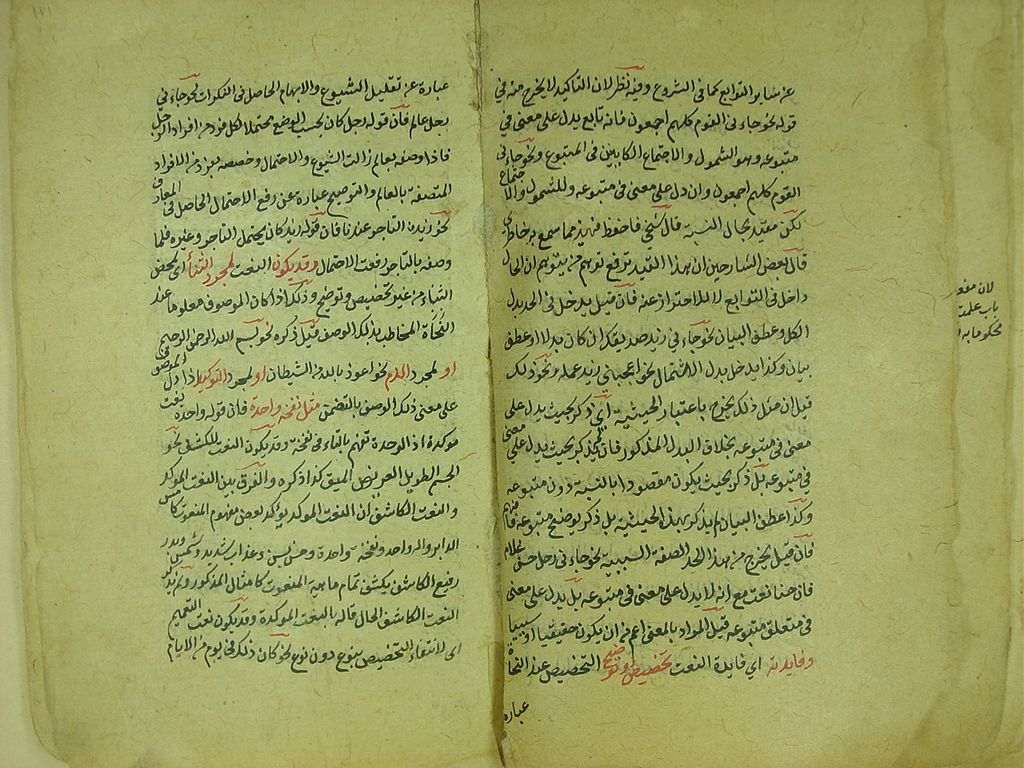 عن سائر التوابع كما فى الشروع وفيه نظر لان التاكيد لا يخرج منه فى
قوله نحو جاءنى القوم كلهم اجمعون فانه تابع يدل على معنى فى
متبوعه وهو الشمول والاجتماع الكاينين فى المتبوع ونحو جاءنى
القوم كلهم اجمعون وان دل على معنى فى متبوعه وللشمول والاجتماع
لكن مقيد بحال النسبة قال شيخى فاحفظ فهذه مما سمع به خاطرى
قال بعض الشارحين ان بهذا القيد ترفع توهم من يتوهم ان الحال
داخل فى التوابع لا للاحتراز عنه فان قيل يدخل فى الحد بدل
الكل وعطف البيان نحو جاءنى زيد صديقك ان كان بدلا او عطف
بيان وكذا يدخل بدل الاشتمال نحو اعجبنى زيد علمه ونحو ذلك
قيل ان مثل ذلك يخرج باعتبار الحيثية اى ذكر بحيث يدل على
معنى فى متبوعه بخلاف البدل المذكور فانه لم يذكر بحيث يدل على معنى
فى متبوعه بل ذكر بحيث يكون مقصودا بالنسبة دون متبوعه
وكذا عطف البيان لم يذكر بهذه الحيثية بل ذكر ليوضح متبوعه فافهم
فان قيل يخرج من هذا الحد الصفة السببية نحو جاءنى رجل حسن غلامه
فان حسنا نعت مع انه لا يدل على معنى فى متبوعه بل يدل على معنى
فى متعلق متبوعه قيل المراد بالمعنى اعم من ان يكون حقيقيا او سببيا
وفايدته اى فايدة النعت تخصيص او توضيح التخصيص عند النحاة
عبارة
لان
باب علمت
محكوما به
١٧١
عبارة عن تقليل الشيوع والابهام الحاصل فى النكرات نحو جاءنى
رجل عالم فان قوله رجل كان بحسب الوضع محتملا لكل فرد من افراد الرجل
فاذا وصفه بعالم زالت الشيوع والاحتمال وخصصه بفرد من الافراد
المتصفة بالعالم والتوضيح عبارة عن رفع الاحتمال الحاصل فى المعارف
نحو زيد التاجر عندنا فان قوله زيد كان يحتمل التاجر وغيره فلما
وصفه بالتاجر رفعت الاحتمال وقد يكون النعت لمجرد الثناء اى لمحض
الثناء من غير تخصيص وتوضيح وذلك اذا كان الموصوف معلوما عند
المخاطب بذلك الوصف قبل ذكره نحو بسم الله الرحمن الرحيم
او لمجرد الذم نحو اعوذ بالله من الشيطان او لمجرد التوكيد اذا دل الموصوف
على معنى ذلك الوصف بالتضمن مثل نفخة واحدة فان قوله واحدة نعت
موكدة اذ الوحدة تفهم بالتاء فى نفخة وقد يكون النعت للكشف نحو
الجسم الطويل العريض العميق كذا ذكره والفرق بين النعت الموكد
والنعت الكاشف ان النعت الموكد يوكد بعض مفهوم المنعوت كامس
الدابر واله واحد ونفخة واحدة
والنعت الكاشف يكشف تمام ماهية المنعوت كامثال المذكور ولم يذكر
النعت الكاشف الحال قاله بالنعت الموكدة وقد يكون نعت التعميم
اى لانتفاء التخصيص بنوع دون نوع نحو كان ذلك فى يوم من الايام